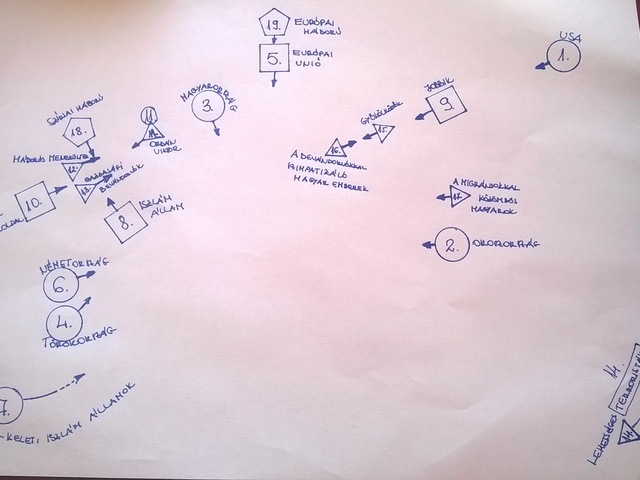 19. EURÓPAI
HÁBORÚ
5. EURÓPAI
UNIÓ
USA
1.
MAGYARORSZÁG
3.
JOBBIK
9.
SZÍRIAI HÁBORÚ
18.
11.
11.
ORBÁN
VIKTOR
GYŰLÖLKÖDŐK
15.
16.
A BEVÁNDORLÓKKAL
SZIMPATIZÁLÓ
MAGYAR EMBEREK
HÁBORÚS MENEKÜLTEK
12.
GAZDASÁGI
BEVÁNDORLÓK
13.
10.
8. ISZLÁM
ÁLLAM
A MIGRÁNSOKKAL
17. KÖZÖMBÖS
MAGYAROK
2. OROSZORSZÁG
NÉMETORSZÁG
6.
4.
TÖRÖKORSZÁG
7.
-KELETI ISZLÁM ÁLLAMOK
14.
LEHETSÉGES
14.